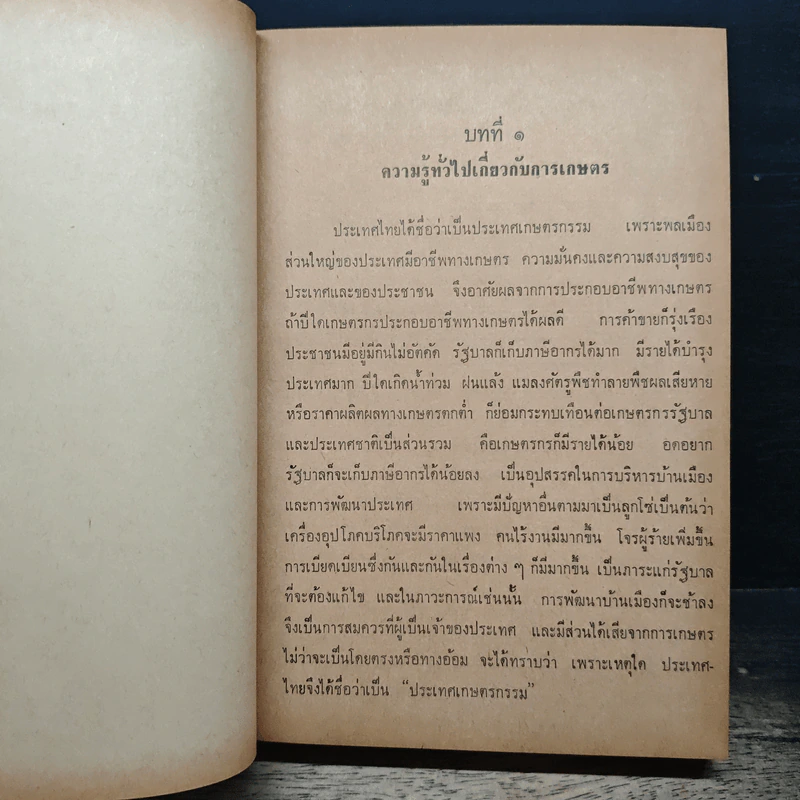 บทที่ ๑
ความรู้ทั่วไปเกี่ยวกับการเกษตร
ประเทศไทยได้ชื่อว่าเป็นประเทศเกษตรกรรม เพราะพลเมือง
ส่วนใหญ่ของประเทศมีอาชีพทางเกษตร ความมั่นคงและความสงบสุขของ
ประเทศและของประชาชน จึงอาศัยผลจากการประกอบอาชีพทางเกษตร
ถ้าปีใดเกษตรกรประกอบอาชีพทางเกษตรได้ผลดี การค้าขายก็รุ่งเรือง
ประชาชนมีอยู่มีกินไม่อัตคัด รัฐบาลก็เก็บภาษีอากรได้มาก มีรายได้บำรุง
ประเทศมาก ปีใดเกิดน้ำท่วม ฝนแล้ง แมลงศัตรูพืชทำลายพืชผลเสียหาย
หรือราคาผลิตผลทางเกษตรตกต่ำ ก็ย่อมกระทบเทือนต่อเกษตรกรรัฐบาล
และประเทศชาติเป็นส่วนรวม คือเกษตรกรก็มีรายได้น้อย อดอยาก
รัฐบาลก็จะเก็บภาษีอากรได้น้อยลง เป็นอุปสรรคในการบริหารบ้านเมือง
และการพัฒนาประเทศ เพราะมีปัญหาอื่นตามมาเป็นลูกโซ่เป็นต้นว่า
เครื่องอุปโภคบริโภคจะมีราคาแพง คนไร้งานมีมากขึ้น โจรผู้ร้ายเพิ่มขึ้น
การเบียดเบียนซึ่งกันและกันในเรื่องต่าง ๆ ก็มีมากขึ้น เป็นภาระแก่รัฐบาล
ที่จะต้องแก้ไข และในภาวะการณ์เช่นนั้น การพัฒนาบ้านเมืองก็จะช้าลง
จึงเป็นการสมควรที่ผู้เป็นเจ้าของประเทศ และมีส่วนได้เสียจากการเกษตร
ไม่ว่าจะเป็นโดยตรงหรือทางอ้อม จะได้ทราบว่า เพราะเหตุใด ประเทศ-
ไทยจึงได้ชื่อว่าเป็น “ประเทศเกษตรกรรม”